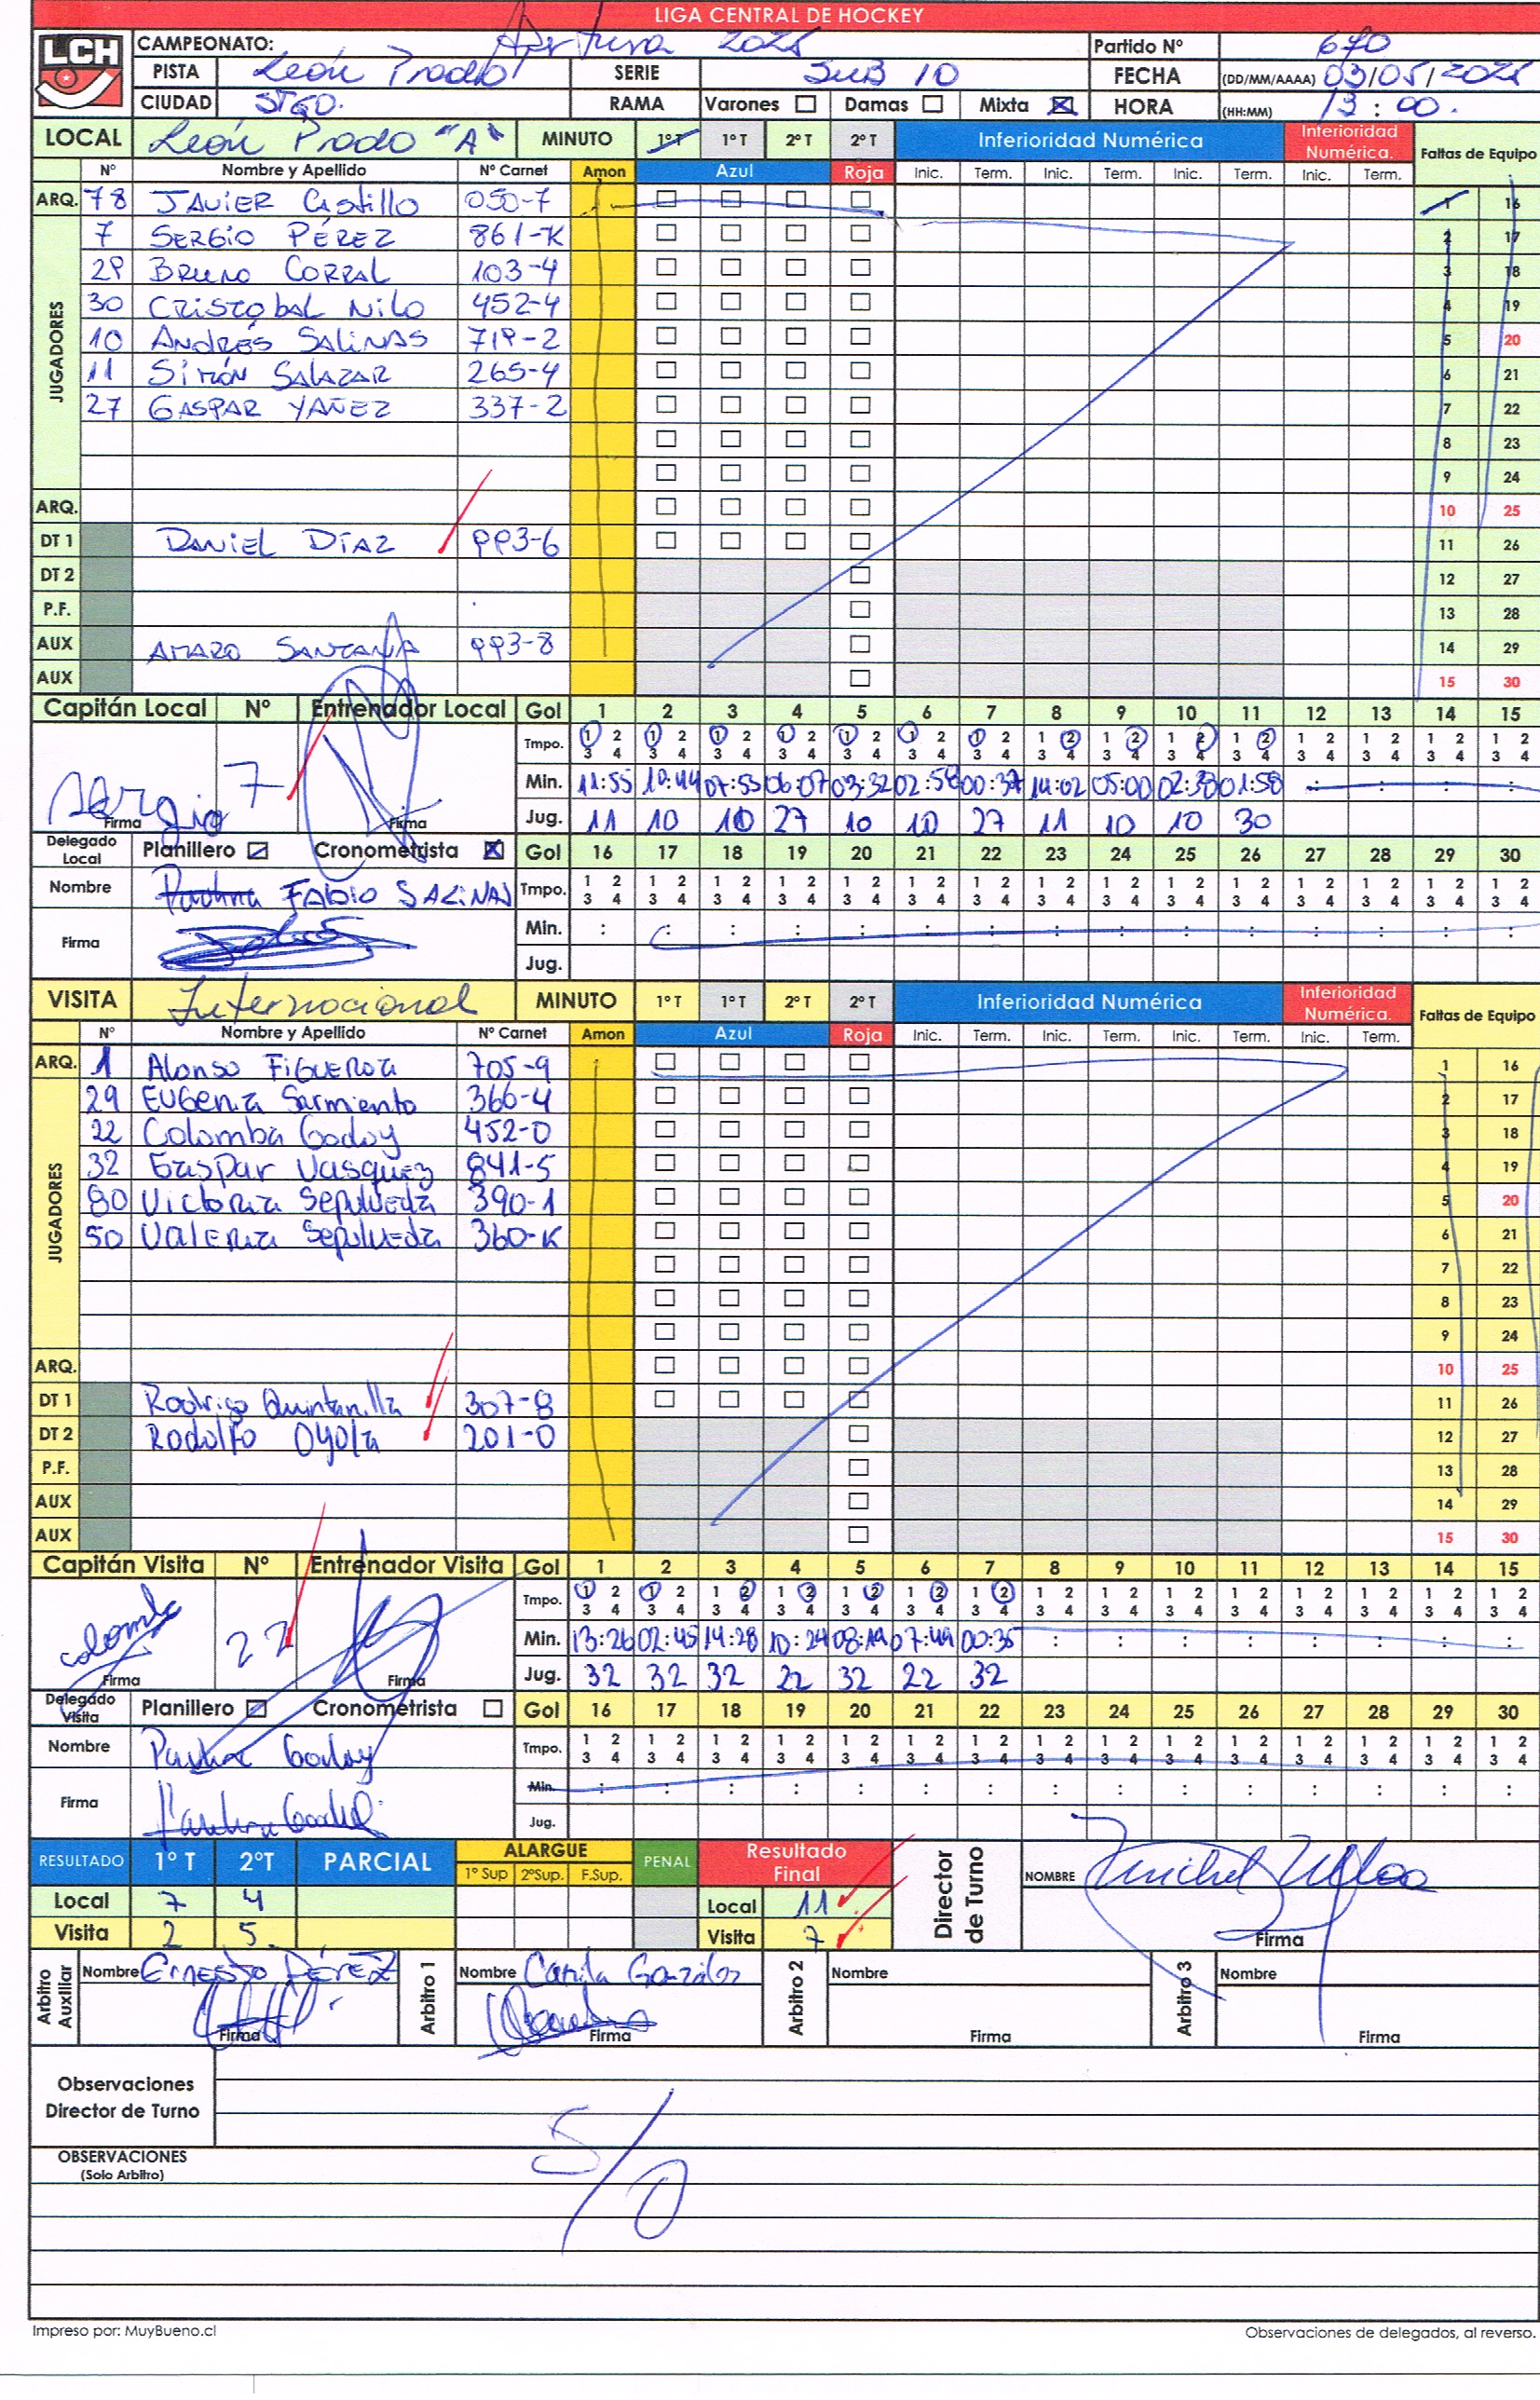 LIGA CENTRAL DE HOCKEY
LCH CAMPEONATO: Apertura 2025 Partido Nº 670
PISTA León Prado SERIE SUB 10 FECHA (DD/MM/AAAA) 03/05/2025
CIUDAD STGO. RAMA Varones Damas Mixta HORA (HH:MM) 13:00.
LOCAL León Prado "A" MINUTO 1º T 1º T 2º T 2º T Inferioridad Numérica Inferioridad Numérica. Faltas de Equipo
Nº Nombre y Apellido Nº Carnet Amon Azul Roja Inic. Term. Inic. Term. Inic. Term. Inic. Term.
ARQ. 78 JAVIER Castillo 050-7 1 16
JUGADORES
7 SERGIO PÉREZ 861-K 2 17
29 BRUNO CORRAL 103-4 3 18
30 CRISTOBAL NILO 452-4 4 19
10 ANDRÉS SALINAS 719-2 5 20
11 SIMÓN SALAZAR 265-4 6 21
27 GASPAR YAÑEZ 337-2 7 22
8 23
9 24
ARQ. 10 25
DT 1 DANIEL DÍAZ 993-6 11 26
DT 2 12 27
P.F. 13 28
AUX AMARO SANTANA 993-8 14 29
AUX 15 30
Capitán Local Nº Entrenador Local Gol 1 2 3 4 5 6 7 8 9 10 11 12 13 14 15
Tmpo. 1 2 1 2 1 2 1 2 1 2 1 2 1 2 1 2 1 2 1 2 1 2 1 2 1 2 1 2 1 2
3 4 3 4 3 4 3 4 3 4 3 4 3 4 3 4 3 4 3 4 3 4 3 4 3 4 3 4 3 4
Sergio 7 Min. 11:55 10:44 07:55 06:07 03:32 02:58 00:37 14:02 05:00 02:38 01:58 : : : :
Firma Firma Jug. 11 10 10 27 10 10 27 11 10 10 30
Delegado Local Planillero Cronometrista Gol 16 17 18 19 20 21 22 23 24 25 26 27 28 29 30
Nombre FABIO SALINAS Tmpo. 1 2 1 2 1 2 1 2 1 2 1 2 1 2 1 2 1 2 1 2 1 2 1 2 1 2 1 2 1 2
3 4 3 4 3 4 3 4 3 4 3 4 3 4 3 4 3 4 3 4 3 4 3 4 3 4 3 4 3 4
Firma Min. : : : : : : : : : : : : : : :
Jug.
VISITA Internacional MINUTO 1º T 1º T 2º T 2º T Inferioridad Numérica Inferioridad Numérica. Faltas de Equipo
Nº Nombre y Apellido Nº Carnet Amon Azul Roja Inic. Term. Inic. Term. Inic. Term. Inic. Term.
ARQ. 1 Alonso FIGUEROA 705-9 1 16
JUGADORES
29 EUGENIA Sarmiento 366-4 2 17
22 Colomba Godoy 452-0 3 18
32 Gaspar Vasquez 841-5 4 19
80 Victoria Sepulveda 390-1 5 20
50 Valeria Sepulveda 360-K 6 21
7 22
8 23
9 24
ARQ. 10 25
DT 1 Rodrigo Quintanilla 307-8 11 26
DT 2 Rodolfo Oyola 201-0 12 27
P.F. 13 28
AUX 14 29
AUX 15 30
Capitán Visita Nº Entrenador Visita Gol 1 2 3 4 5 6 7 8 9 10 11 12 13 14 15
Tmpo. 1 2 1 2 1 2 1 2 1 2 1 2 1 2 1 2 1 2 1 2 1 2 1 2 1 2 1 2 1 2
3 4 3 4 3 4 3 4 3 4 3 4 3 4 3 4 3 4 3 4 3 4 3 4 3 4 3 4 3 4
Colomba 22 Min. 13:26 02:45 14:28 10:24 08:19 07:49 00:35 : : : : : : : :
Firma Firma Jug. 32 32 32 22 32 22 32
Delegado Visita Planillero Cronometrista Gol 16 17 18 19 20 21 22 23 24 25 26 27 28 29 30
Nombre Paulina Godoy Tmpo. 1 2 1 2 1 2 1 2 1 2 1 2 1 2 1 2 1 2 1 2 1 2 1 2 1 2 1 2 1 2
3 4 3 4 3 4 3 4 3 4 3 4 3 4 3 4 3 4 3 4 3 4 3 4 3 4 3 4 3 4
Firma Min. : : : : : : : : : : : : : : :
Jug.
RESULTADO 1º T 2ºT PARCIAL ALARGUE PENAL Resultado Final Director de Turno NOMBRE
1º Sup 2ºSup. F.Sup.
Local 7 4 Local 11
Visita 2 5 Visita 7 Firma
Arbitro Auxiliar Nombre ERNESTO PÉREZ Arbitro 1 Nombre Camila González Arbitro 2 Nombre Arbitro 3 Nombre
Firma Firma Firma Firma
Observaciones Director de Turno
OBSERVACIONES (Solo Arbitro)
S/O
Impreso por: MuyBueno.cl Observaciones de delegados, al reverso.